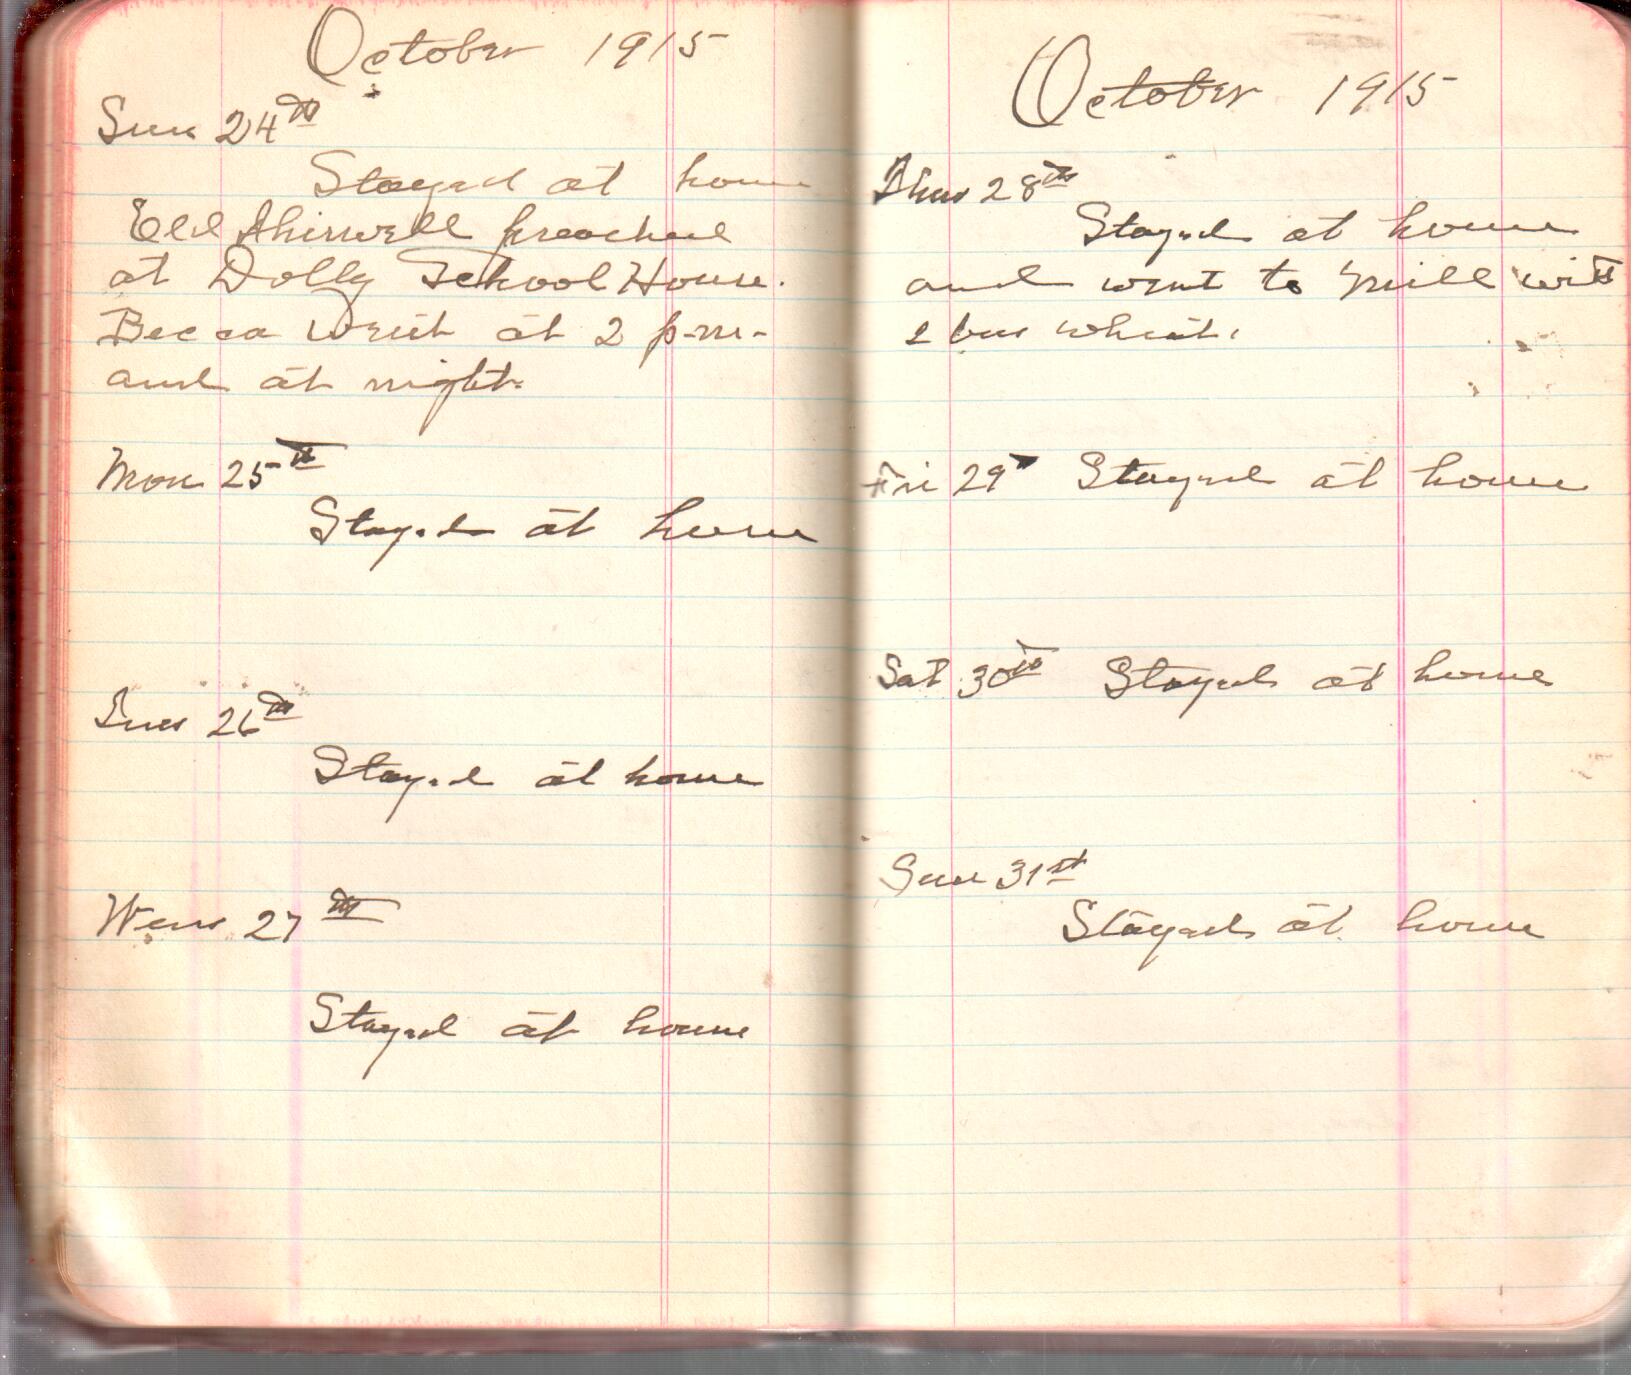 October 1915
Sun 24th
Stayed at home
Eld Thirwell preached
at Dolly School House.
Becca went at 2 p.m.
and at night.
Mon 25th
Stayed at home
Tues 26th
Stayed at home
Wens 27th
Stayed at home
October 1915
Thus 28th
Stayed at home
and went to mill with
2 bus wheat.
Fri 29th Stayed at home
Sat 30th Stayed at home
Sun 31st
Stayed at home